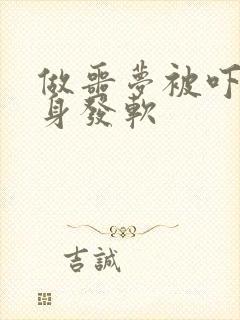 做噩夢被吓
身發軟
吉誠